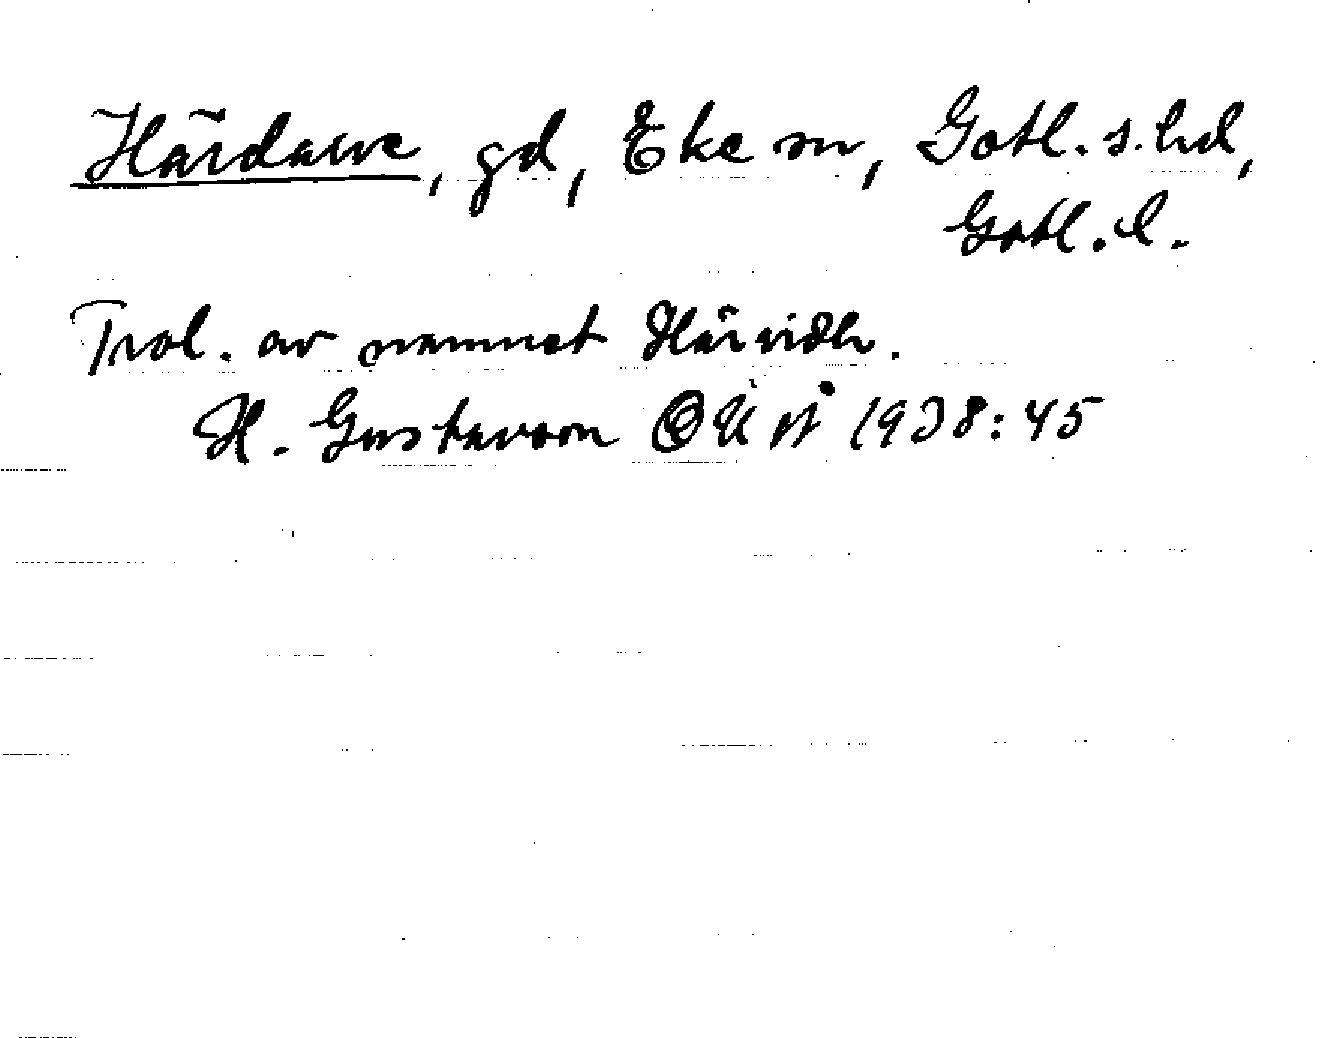 Härdarve, gd, Eke sn, Gotl. s. hd,
Gotl. l.
Trol. av namnet Härvidh.
H. Gustavson OUÅ 1938: 45